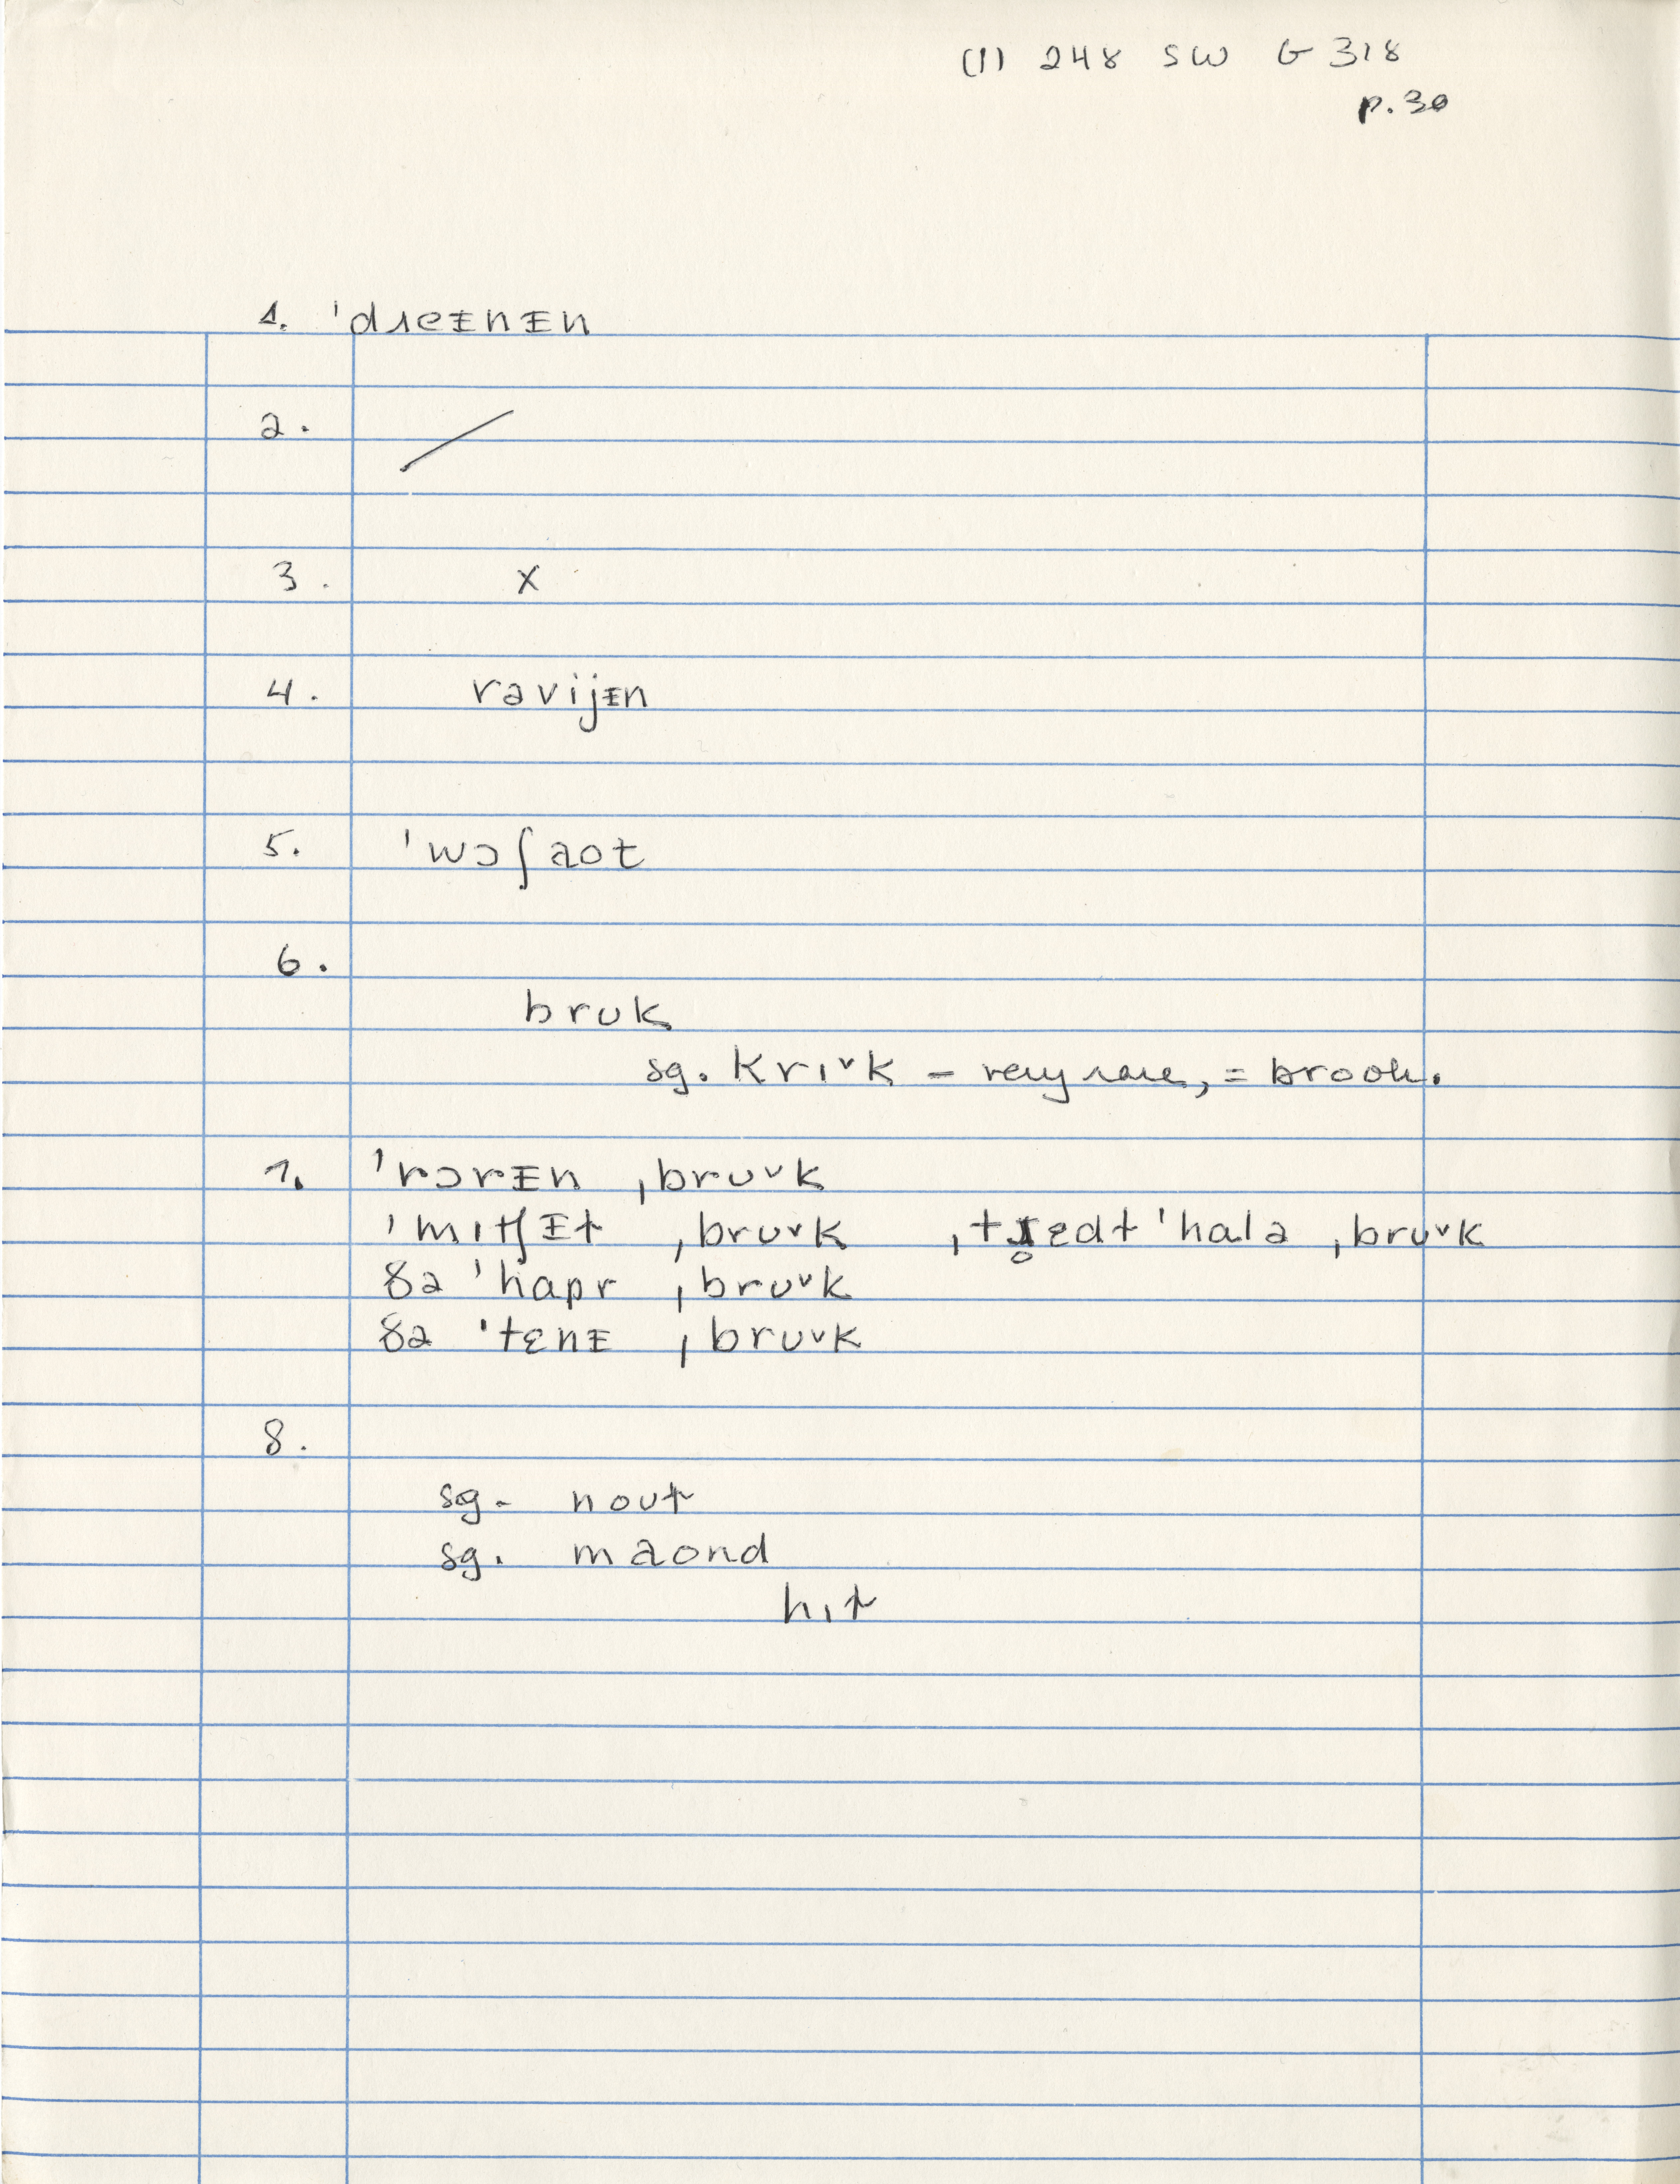 (1) 248 SW G 318
p. 30
1. ˈdɹeɪnɪn
2. /
3. x
4. ravijɪn
5. ˈwɔʃaot
6.
brʊk
sg. krɪᵛk – very rare, = brook.
7. ˈrɔrɪn ˌbrʊᵛk
ˈmɪtʃɪt ˌbrʊᵛk ˌtɹ̥ɛdt ˈhalə ˌbrʊᵛk
ðə ˈhapr ˌbrʊᵛk
ðə ˈtɛnɪ ˌbrʊᵛk
8.
sg. noʊt
sg. maond
hɪt